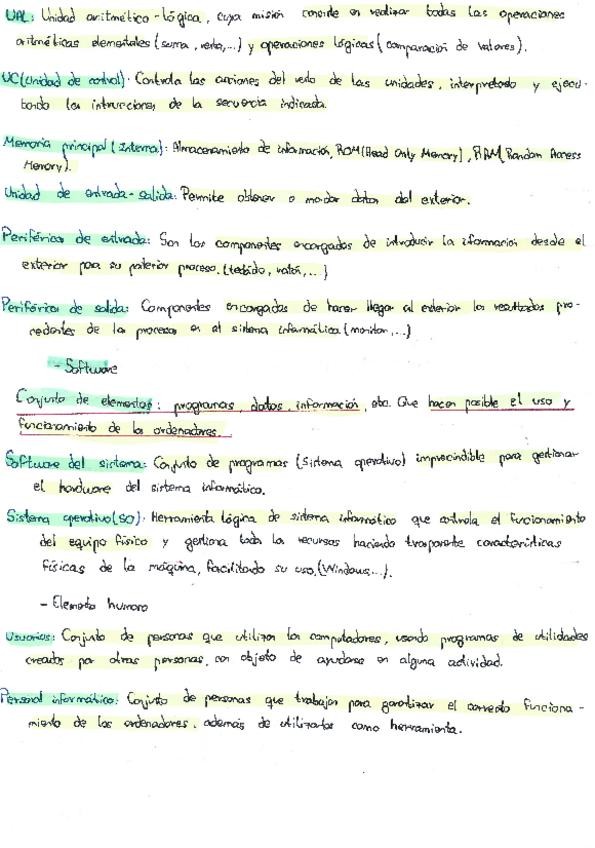 UAL: Unidad aritmético-lógica, cuya misión consiste en realizar todas las operaciones
aritméticas elementales (suma, resta,...) y operaciones lógicas (comparación de valores).
UC (Unidad de control): Controla las acciones del resto de las unidades, interpretando y ejecu-
tando las instrucciones de la secuencia indicada.
Memoria principal (Interna): Almacenamiento de información, ROM (Read Only Memory), RAM, Random Access
Memory).
Unidad de entrada-salida: Permite obtener o mandar datos del exterior.
Periféricos de entrada: Son los componentes encargados de introducir la información desde el
exterior para su posterior proceso. (teclado, ratón,...)
Periféricos de salida: Componentes encargados de hacer llegar al exterior los resultados pro-
cedentes de los procesos en el sistema informático (monitor,...)
- Software
Conjunto de elementos: programas, datos, información, etc. Que hacen posible el uso y
funcionamiento de los ordenadores.
Software del sistema: Conjunto de programas (Sistema operativo) imprescindible para gestionar
el hardware del sistema informático.
Sistema operativo (SO): Herramienta lógica de sistema informático que controla el funcionamiento
del equipo físico y gestiona todos los recursos haciendo trasparente características
físicas de la máquina, facilitando su uso, (Windows,...).
- Elemento humano
Usuarios: Conjunto de personas que utilizan los computadores, usando programas de utilidades
creados por otras personas, con objeto de ayudarse en alguna actividad.
Personal informático: Conjunto de personas que trabajan para garantizar el correcto funciona-
miento de los ordenadores, además de utilizarlos como herramienta.